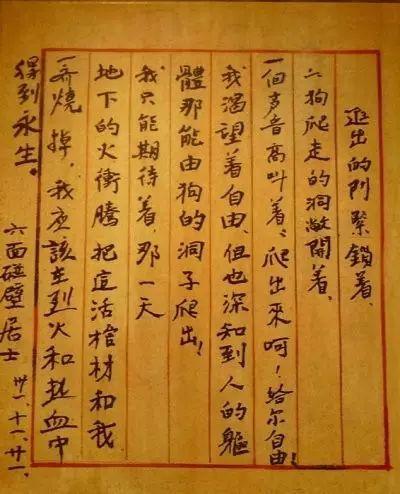 出的门緊鎖着、
狗爬走的洞敞開着、
一個声音高叫着、爬出來呵!給尔自由!
我渴望着自由、但也深知到人的軀
體那能由狗的洞子爬出!
我只能期待着、那一天
地下的火衝騰把這活棺材和我
一齊燒掉,我應該在烈火和热血中
得到永生。
六面碰壁居士 卅一、十一、廿一、